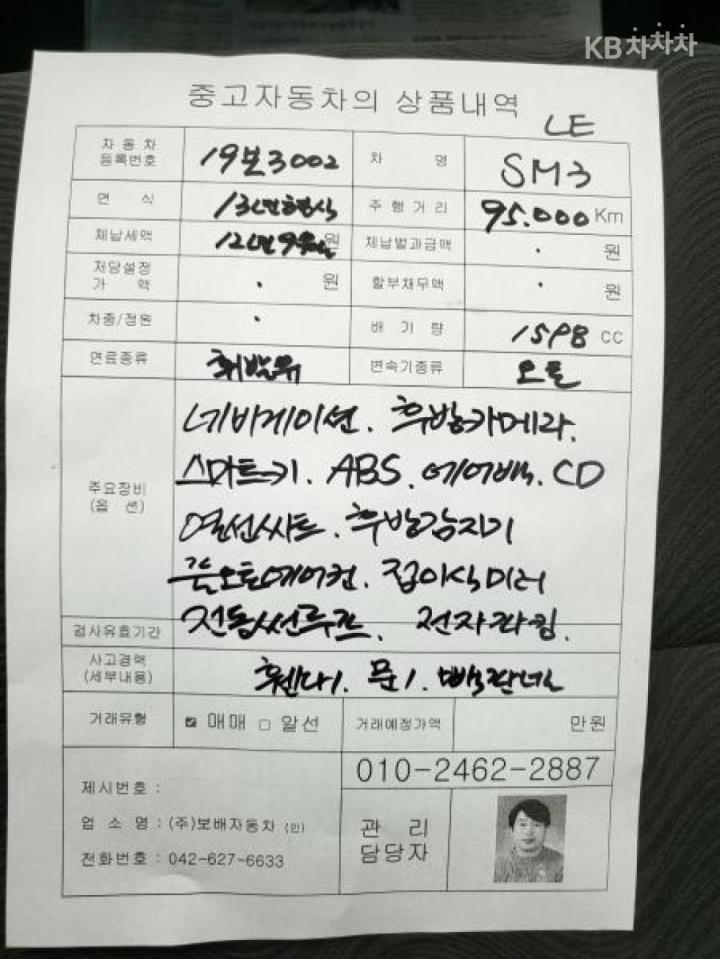 KB차차차
중고자동차의 상품내역
LE
자동차 등록번호 19보3002 차 명 SM3
연 식 13년형식 주행거리 95.000 Km
체납세액 원 체납벌과금액 . 원
저당설정 가 액 . 원 할부채무액 . 원
차종/정원 . 배 기 량 1598 cc
연료종류 휘발유 변속기종류 오토
주요장비 (옵 션)
네비게이션. 후방카메라.
스마트키. ABS. 에어백. CD
열선시트. 후방감지기
풀오토에어컨. 접이식미러
전동썬루프. 전자파킹.
검사유효기간
사고경력 (세부내용) 휀다1. 문1. 빽판넬
거래유형 ☑ 매매 □ 알선 거래예정가액 만원
010-2462-2887
제시번호 :
업 소 명 : (주)보배자동차 (인)
전화번호 : 042-627-6633
관 리
담당자